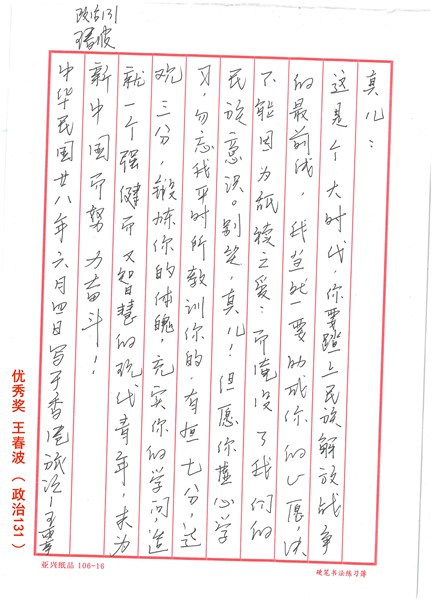 政治131
王春波
真儿：
这是个大时代，你要踏上民族解放战争
的最前线，我当然要助成你的心愿，决
不能因为舐犊之爱：而淹没了我们的
民族意识。别矣，真儿！但愿你慎心学
习，勿忘我平时所教训你的，有担七分，达
观三分，锻炼你的体魄，充实你的学问，造
就一个强健而又智慧的现代青年，来为
新中国而努力奋斗！
中华民国廿八年六月四日写于香港旅次
优秀奖 王春波（政治131）
亚兴纸品 106-16
硬笔书法练习簿